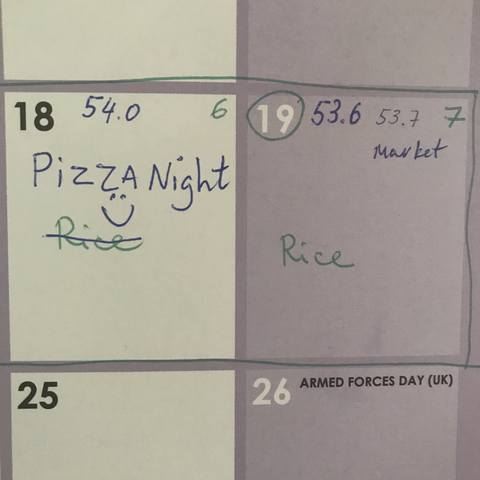 18 54.0 6
PizzA Night
Rice
19 53.6 53.7 7
Market
Rice
25
26 ARMED FORCES DAY (UK)